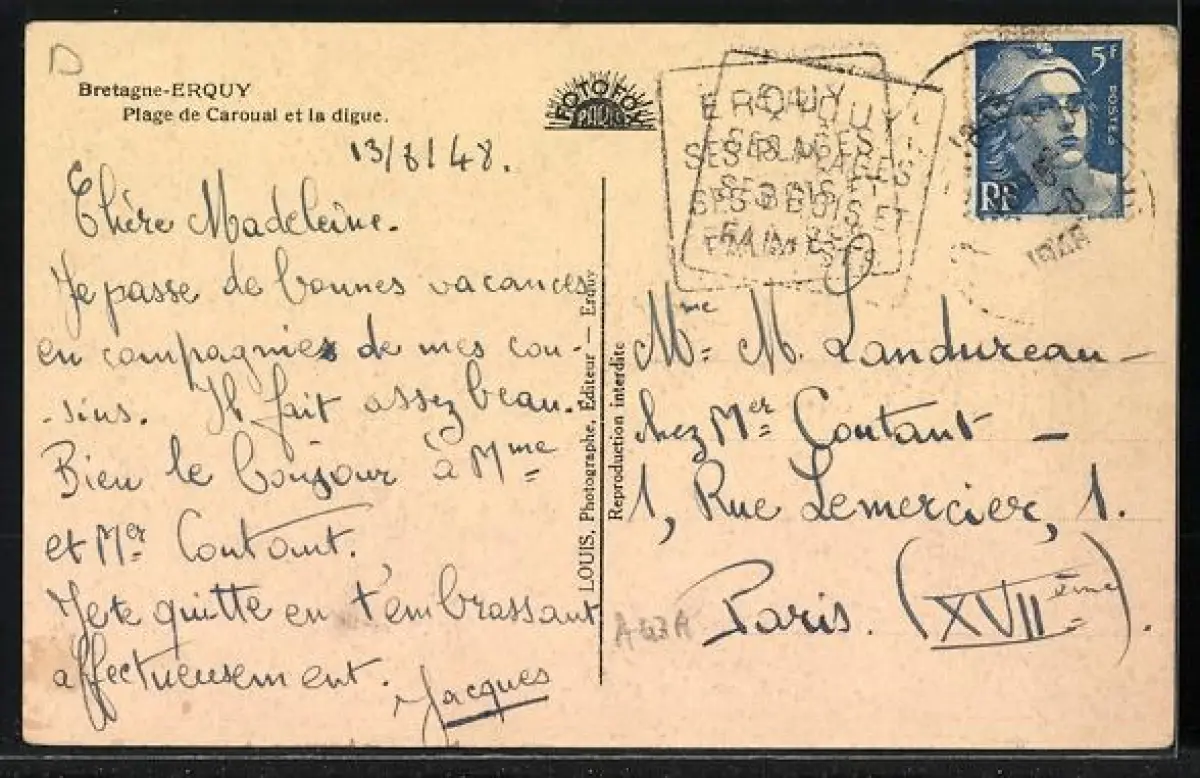 D
Bretagne-ERQUY
Plage de Caroual et la digue.
FOTOFOX
PARIS
13/8/48.
Chère Madeleine.
Je passe de bonnes vacances
en compagnies de mes cou-
-sins. Il fait assez beau.
Bien le bonjour à Mme
et Mer Coutant.
Je te quitte en t'embrassant
affectueusement.
Jacques
LOUIS, Photographe, Éditeur — Erquy
Reproduction interdite
ERQUY
SES PLAGES
SES BOIS ET
5f
POSTES
RF
Mme M. Landureau-
chez Mer Coutant —
1, Rue Lemercier, 1.
Paris. (XVIIème).